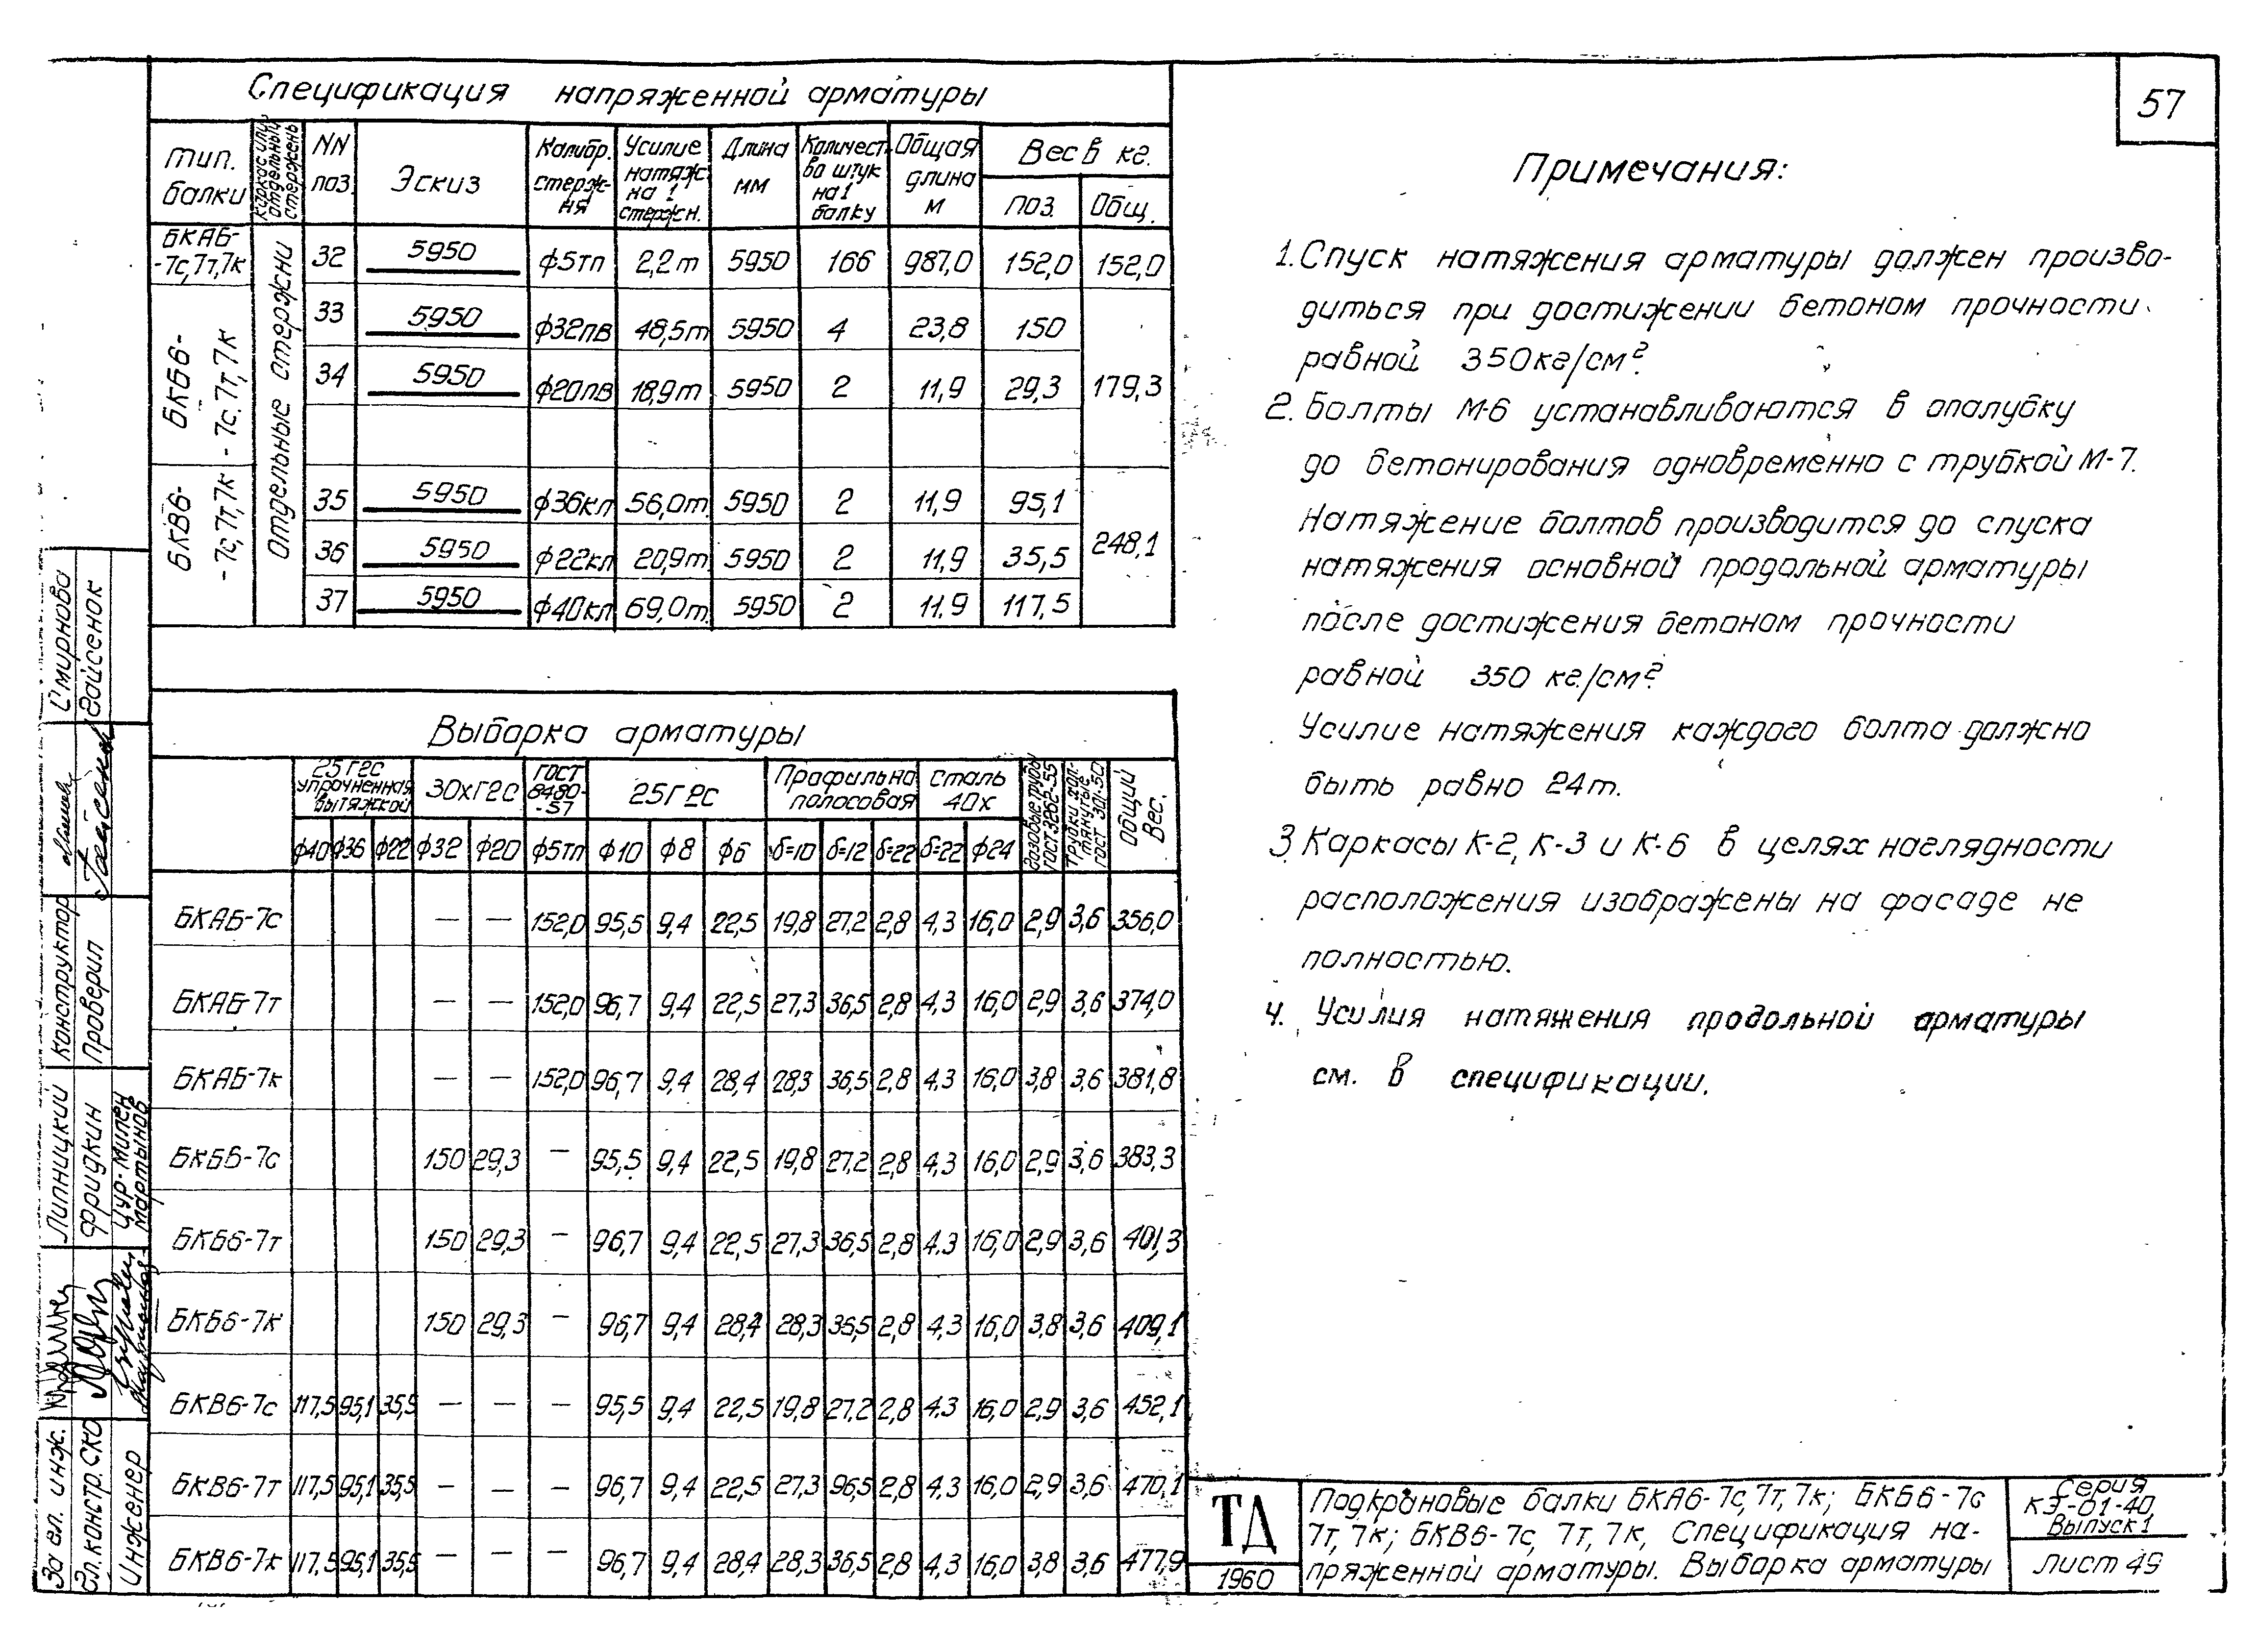 57
Спецификация напряженной арматуры
Тип. балки | Каркас или отдельный стержень | NN поз. | Эскиз | Калибр. стерж-ня | Усилие натяж. на 1 стержн. | Длина мм | Количест-во штук на 1 балку | Общая длина м | Вес в кг. | поз. | Общ.
Отдельные стержни
БКАБ--7с,7т,7к | 32 | 5950 | ф5тп | 2,2т | 5950 | 166 | 987,0 | 152,0 | 152,0
БКБ6--7с,7т,7к | 33 | 5950 | ф32пв | 48,5т | 5950 | 4 | 23,8 | 150
34 | 5950 | ф20пв | 18,9т | 5950 | 2 | 11,9 | 29,3 | 179,3
БКВ6--7с,7т,7к | 35 | 5950 | ф36кл | 56,0т. | 5950 | 2 | 11,9 | 95,1
36 | 5950 | ф22кл | 20,9т. | 5950 | 2 | 11,9 | 35,5 | 248,1
37 | 5950 | ф40кл | 69,0т. | 5950 | 2 | 11,9 | 117,5
Выборка арматуры
25Г2С упрочненная вытяжкой | 30хГ2С | ГОСТ 8480--57 | 25Г2С | Профильна полосовая | Сталь 40х | Газовые трубы ГОСТ 3262-55 | Трубки гол-тянутые ГОСТ 301-50 | Общий Вес.
ф40 | ф36 | ф22 | ф32 | ф20 | ф5тп | ф10 | ф8 | ф6 | δ=10 | δ=12 | δ=22 | δ=22 | ф24
БКАБ-7с | — | — | 152,0 | 95,5 | 9,4 | 22,5 | 19,8 | 27,2 | 2,8 | 4,3 | 16,0 | 2,9 | 3,6 | 356,0
БКАБ-7т | — | — | 152,0 | 96,7 | 9,4 | 22,5 | 27,3 | 36,5 | 2,8 | 4,3 | 16,0 | 2,9 | 3,6 | 374,0
БКАБ-7к | — | — | 152,0 | 96,7 | 9,4 | 28,4 | 28,3 | 36,5 | 2,8 | 4,3 | 16,0 | 3,8 | 3,6 | 381,8
БКБ6-7с | 150 | 29,3 | — | 95,5 | 9,4 | 22,5 | 19,8 | 27,2 | 2,8 | 4,3 | 16,0 | 2,9 | 3,6 | 383,3
БКБ6-7т | 150 | 29,3 | — | 96,7 | 9,4 | 22,5 | 27,3 | 36,5 | 2,8 | 4,3 | 16,0 | 2,9 | 3,6 | 401,3
БКБ6-7к | 150 | 29,3 | — | 96,7 | 9,4 | 28,4 | 28,3 | 36,5 | 2,8 | 4,3 | 16,0 | 3,8 | 3,6 | 409,1
БКВ6-7с | 117,5 | 95,1 | 35,5 | — | — | — | 95,5 | 9,4 | 22,5 | 19,8 | 27,2 | 2,8 | 4,3 | 16,0 | 2,9 | 3,6 | 452,1
БКВ6-7т | 117,5 | 95,1 | 35,5 | — | — | — | 96,7 | 9,4 | 22,5 | 27,3 | 96,5 | 2,8 | 4,3 | 16,0 | 2,9 | 3,6 | 470,1
БКВ6-7к | 117,5 | 95,1 | 35,5 | — | — | — | 96,7 | 9,4 | 28,4 | 28,3 | 36,5 | 2,8 | 4,3 | 16,0 | 3,8 | 3,6 | 477,9
Примечания:
1. Спуск натяжения арматуры должен произво-
диться при достижении бетоном прочности
равной 350кг/см²
2. Болты М-6 устанавливаются в опалубку
до бетонирования одновременно с трубкой М-7.
Натяжение болтов производится до спуска
натяжения основной продольной арматуры
после достижения бетоном прочности
равной 350 кг/см²
Усилие натяжения каждого болта должно
быть равно 24т.
3. Каркасы К-2, К-3 и К-6 в целях наглядности
расположения изображены на фасаде не
полностью.
4. Усилия натяжения продольной арматуры
см. в спецификации.
ТД
1960
Подкрановые балки БКА6-7с,7т,7к; БКБ6-7с
7т,7к; БКВ6-7с, 7т,7к, Спецификация на-
пряженной арматуры. Выборка арматуры
Серия
КЭ-01-40
Выпуск 1
Лист 49
За гл. инж. | Липницкий | Конструктор | Смирнова
Гл.констр.СКО | Фридкин | Проверил | Гайсенок
Инженер | Цур-Милен
Мартынов